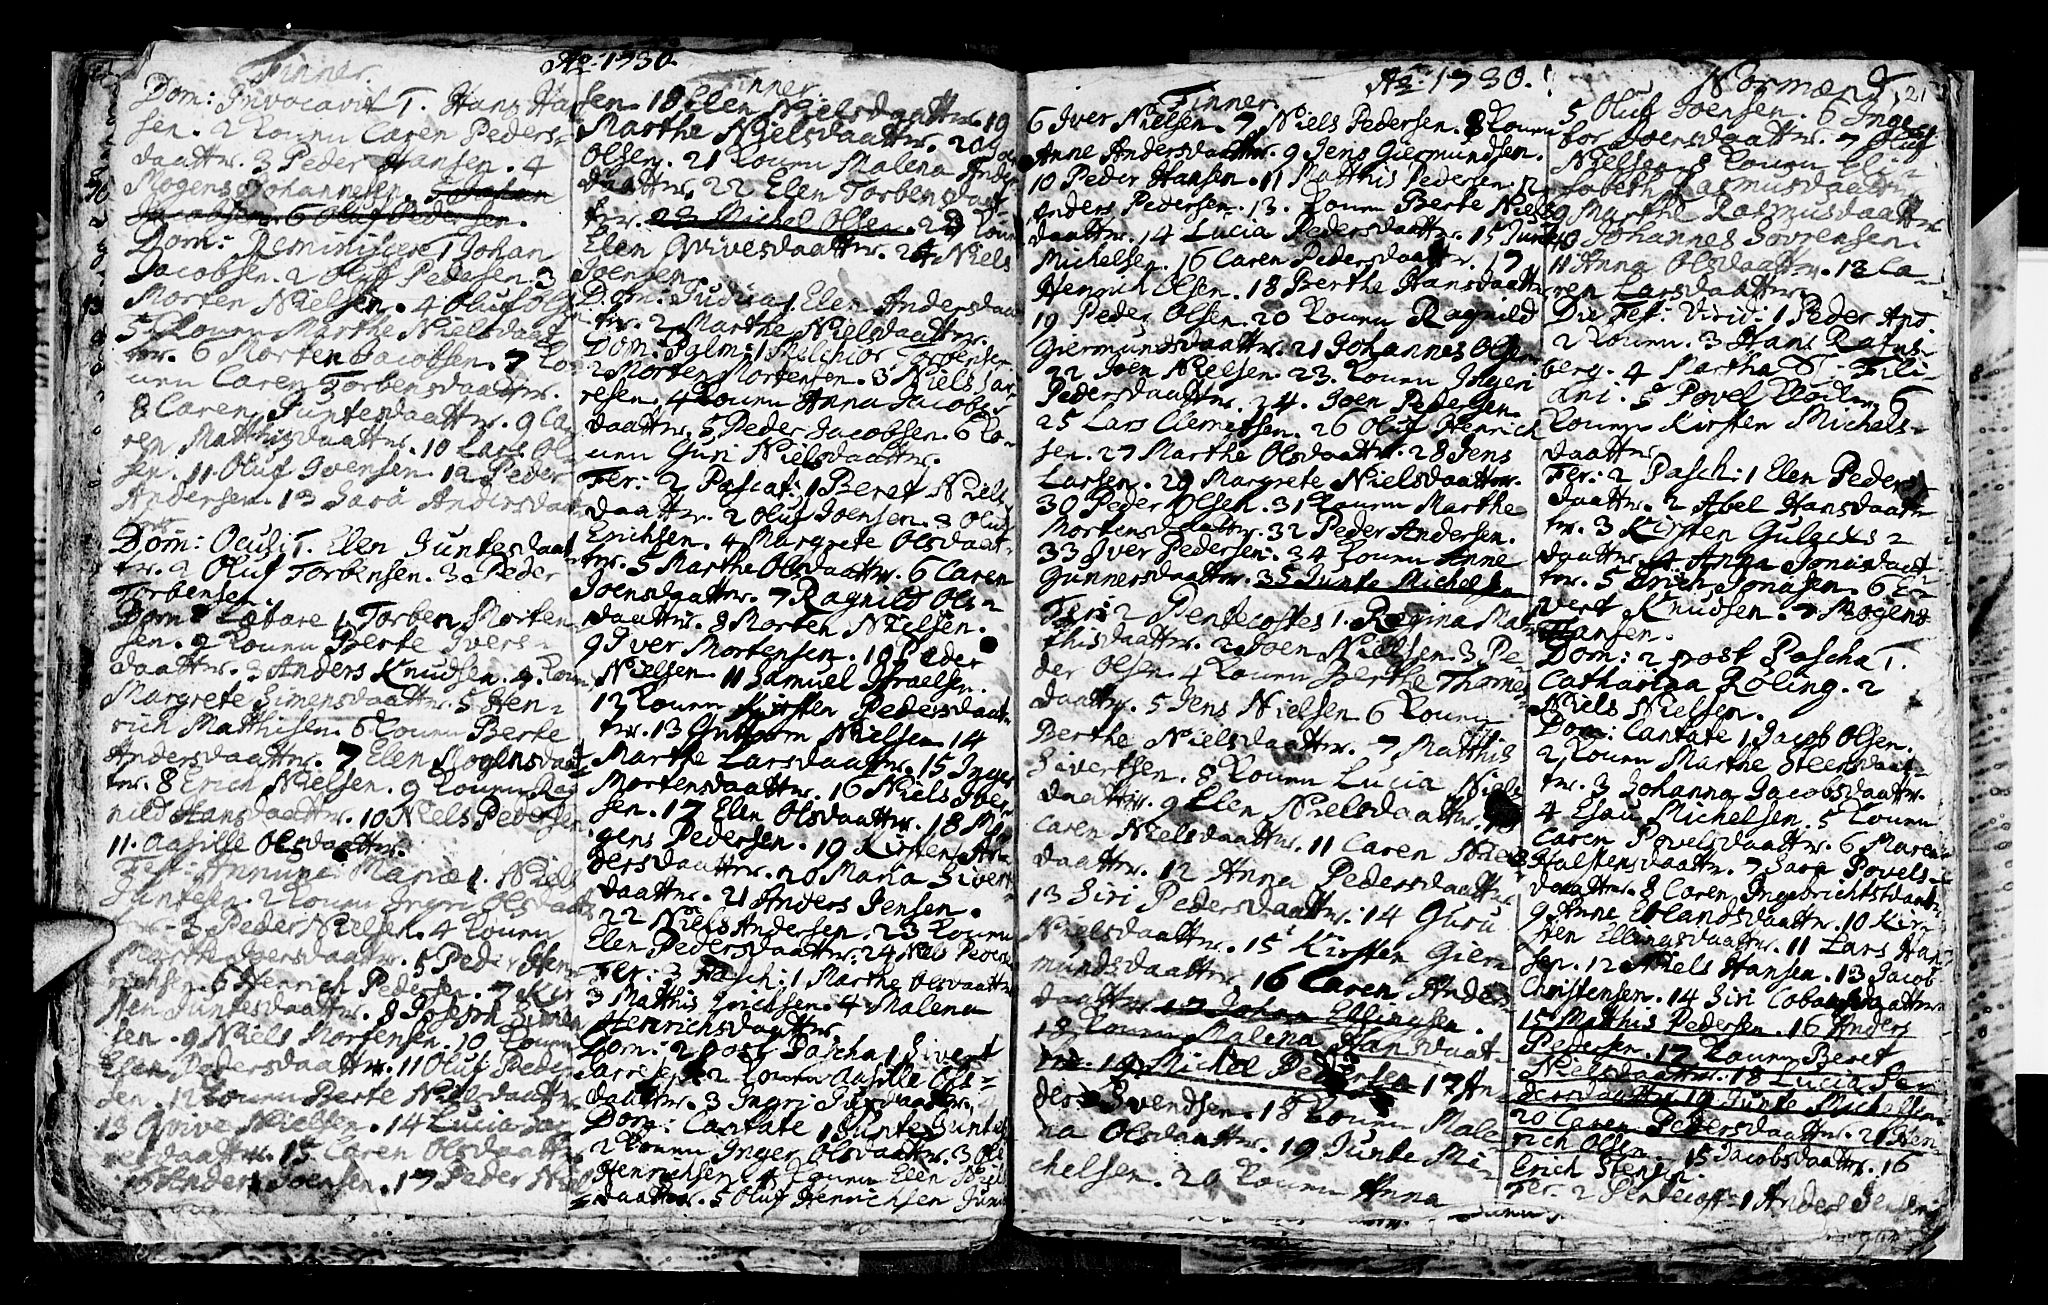 Ao. 1730.
Finner.
Dom: Invocavit 1. Hans Han-
sen. 2 Konen Caren Peders-
daatter. 3 Peder Hansen. 4
Mogens Johannesen. Johan
Jacobsen. 6 Oluf Pedersen.
Dom: Reminiscere 1 Johan
Jacobsen. 2 Oluf Pedersen. 3
Morten Nielsen. 4 Oluf Olsen
5 Konen Marthe Nielsdaat-
ter. 6 Morten Jacobsen. 7 Ko-
nen Caren Torbensdaatter.
8 Caren Juntesdaatter. 9 Ca-
ren Matthisdaatter. 10 Lars Ol-
sen. 11 Oluf Joensen. 12 Peder
Andersen. 13 Sara Andersdaat-
ter.
Dom: Oculi 1. Elen Juntesdaat-
ter. 2 Oluf Torbensen. 3 Peder
Torbensen.
Dom: Lætare 1 Torben Morten-
sen. 2 Konen Berte Ivers-
daatter. 3 Anders Knudsen. 4 Konen
Margrete Simensdaatter. 5 Hen-
rich Matthisen. 6 Konen Berte
Andersdaatter. 7 Elen Mogensdaat-
ter. 8 Erich Nielsen. 9 Konen Rag-
nild Hansdaatter. 10 Niels Pedersen
11. Aasille Olsdaatter.
Fest: Annunc: Mariæ 1. Niels
Juntesen. 2 Konen Ingri Olsdaat-
ter. 3 Peder Nielsen. 4 Konen
Marthe Joensdaatter. 5 Peder Hen-
richsen. 6 Henrich Pedersen. 7 Kir-
sten Juntesdaatter. 8 Joseph Simen-
sen. 9 Niels Mortensen. 10 Konen
Elen Pedersdaatter. 11 Oluf Peder-
sen. 12 Konen Berte Nielsdaatter
13 Qvive Nielsen. 14 Lucia Lar-
resdaatter. 15. Caren Olsdaatter
16 Anders Joensen. 17 Peder Niel-
Finner.
sen. 18 Elen Nielsdaatter. 19
Marthe Nielsdaatter. 20
Olsen. 21 Konen Malena Anders-
daatter. 22 Elen Torbensdaat-
ter. 23 Michel Olsen. 23 Konen
Elen Qvivesdaatter. 24 Niels
Joensen.
Dom: Judica 1. Elen Andersdaat-
ter. 2 Marthe Nielsdaatter.
Dom: Palm: 1 Melchior Torbensen
2 Morten Mortensen. 3 Niels Lar-
resen. 4 Konen Anna Jacobs-
daatter. 5 Peder Jacobsen. 6 Ko-
nen Guri Nielsdaatter.
Fer: 2 Pascat: 1 Beret Niels-
daatter. 2 Oluf Joensen. 3 Oluf
Erichsen. 4 Margrete Olsdaat-
ter. 5 Marthe Olsdaatter. 6 Caren
Joensdaatter. 7 Ragnild Ols-
daatter. 8 Morten Nielsen.
9 Iver Mortensen. 10 Peder
Nielsen. 11 Samuel Israelsen.
12 Konen Kirsten Pedersdaat-
ter. 13 Guttorm Nielsen 14
Marthe Larsdaatter. 15 Inger
Mortensdaatter. 16 Niels Iver-
sen. 17 Elen Olsdaatter. 18 Mo-
gens Pedersen. 19 Kirsten An-
dersdaatter. 20 Maria Sivert-
daatter. 21 Anders Jensen.
22 Niels Andersen. 23 Konen
Elen Pedersdaatter. 24 Niels Pedersen
Fer: 3 Pasch: 1 Marthe Olsdaatter
3 Matthis Erichsen. 4 Malena
Henrichsdaatter
Dom: 2 post Pascha 1 Sivert
Larresen 2 Konen Aasille Ols-
daatter. 3 Ingri Siversdaatter.
Dom: Cantate 1 Junte Juntesen
2 Konen Inger Olsdaatter. 3 Ole
Henrichsen 4 Konen Elen Niels-
daatter. 5 Oluf Henrichsen
Ao. 1730.
Finner.
6 Iver Nielsen. 7 Niels Pedersen. 8 Konen
Anne Andersdaatter. 9 Jens Giermundsen.
10 Peder Hansen. 11 Matthis Pedersen. 12
Anders Pedersen. 13. Konen Berte Niels-
daatter. 14 Lucia Pedersdaatter. 15 Junte
Michelsen. 16 Caren Pedersdaatter. 17
Henrich Olsen. 18 Berthe Hansdaatter
19 Peder Olsen. 20 Konen Ragnild
Giermundsdaatter. 21 Johannes Olsen
22 Joen Nielsen. 23. Konen Ingeri
Pedersdaatter. 24. Joen Pedersen
25 Lars Clemetsen. 26 Oluf Henrich-
sen. 27 Marthe Olsdaatter. 28 Jens
Larsen. 29 Margrete Nielsdaatter.
30 Peder Olsen. 31 Konen Marthe
Mortensdaatter. 32 Peder Andersen.
33 Iver Pedersen. 34 Konen Anne
Gunnersdaatter. 35 Junte Michelsen
Feri 2 Pentecostes 1. Regina Mat-
thisdaatter. 2 Joen Nielsen. 3 Pe-
der Olsen. 4 Konen Berthe Thomes-
daatter. 5 Jens Nielsen. 6 Konen
Berthe Nielsdaatter. 7 Matthis
Sivertsen. 8 Konen Lucia Niels-
daatter. 9 Elen Nielsdaatter. 10
Caren Nielsdaatter. 11 Caren Niels-
daatter. 12 Anna Pedersdaatter
13 Siri Pedersdaatter. 14 Guru
Nielsdaatter. 15 Kirsten Gier-
mundsdaatter. 16 Caren Anders-
daatter 17 Johan Ellingsen.
18 Konen Malena Hansdaat-
ter. 19 Michel Pedersen 17 An-
ders Svendsen. 18 Konen Male-
na Olsdaatter. 19 Junte Mi-
chelsen. 20 Konen Anna
Normænd.
5 Oluf Joensen. 6 Inge-
bor Joensdaatter. 7 Oluf
Nielsen 8 Konen Eli-
sabeth Rasmusdaatter
9 Marthe Rasmusdaatter
10 Johannes Sørrensen.
11 Anna Olsdaatter. 12 Ca-
ren Larsdaatter.
Die Fest: Virid: 1 Peder And.
2 Konen. 3 Hans Rafns-
berg. 4 Martha S. Fili-
ani. 5 Povel 6
Konen Kirsten Michels-
daatter
Fer: 2 Pasch: 1 Elen Peders-
daatter. 2 Abel Hansdaat-
ter. 3 Kirsten Gulachs-
daatter 4 Anna Jonsdaat-
ter. 5 Erich Jonasen. 6 Ei-
vert Knudsen. 7 Mogens
Hansen.
Dom: 2 post Pascha 1.
Catharina Röling. 2
Niels Nielsen.
Dom: Cantate 1 Jacob Olsen.
2 Konen Marthe Steersdaat-
ter. 3 Johanna Jacobsdaatter.
4 Esau Michelsen. 5 Konen
Caren Povelsdaatter. 6 Maren
Halstensdaatter. 7 Sara Povels-
daatter. 8 Caren Ingebrichtsdaatter
9 Anne Erlandsdaatter. 10 Kir-
sten Ellingsdaatter. 11 Lars Han-
sen. 12 Niels Hansen. 13 Jacob
Christensen. 14 Siri daatter
15 Matthis Pedersen. 16 Anders
Pedersen. 17 Konen Beret
Nielsdaatter. 18 Lucia Pe-
dersdaatter 19 Junte Michelsen
20 Caren Pedersdaatter. 21 Hen-
rich Olsen. 15 Jacobsdaatter. 16
Erich Stensen.
Fer. 2 Pentecost: 1 Anders Jensen